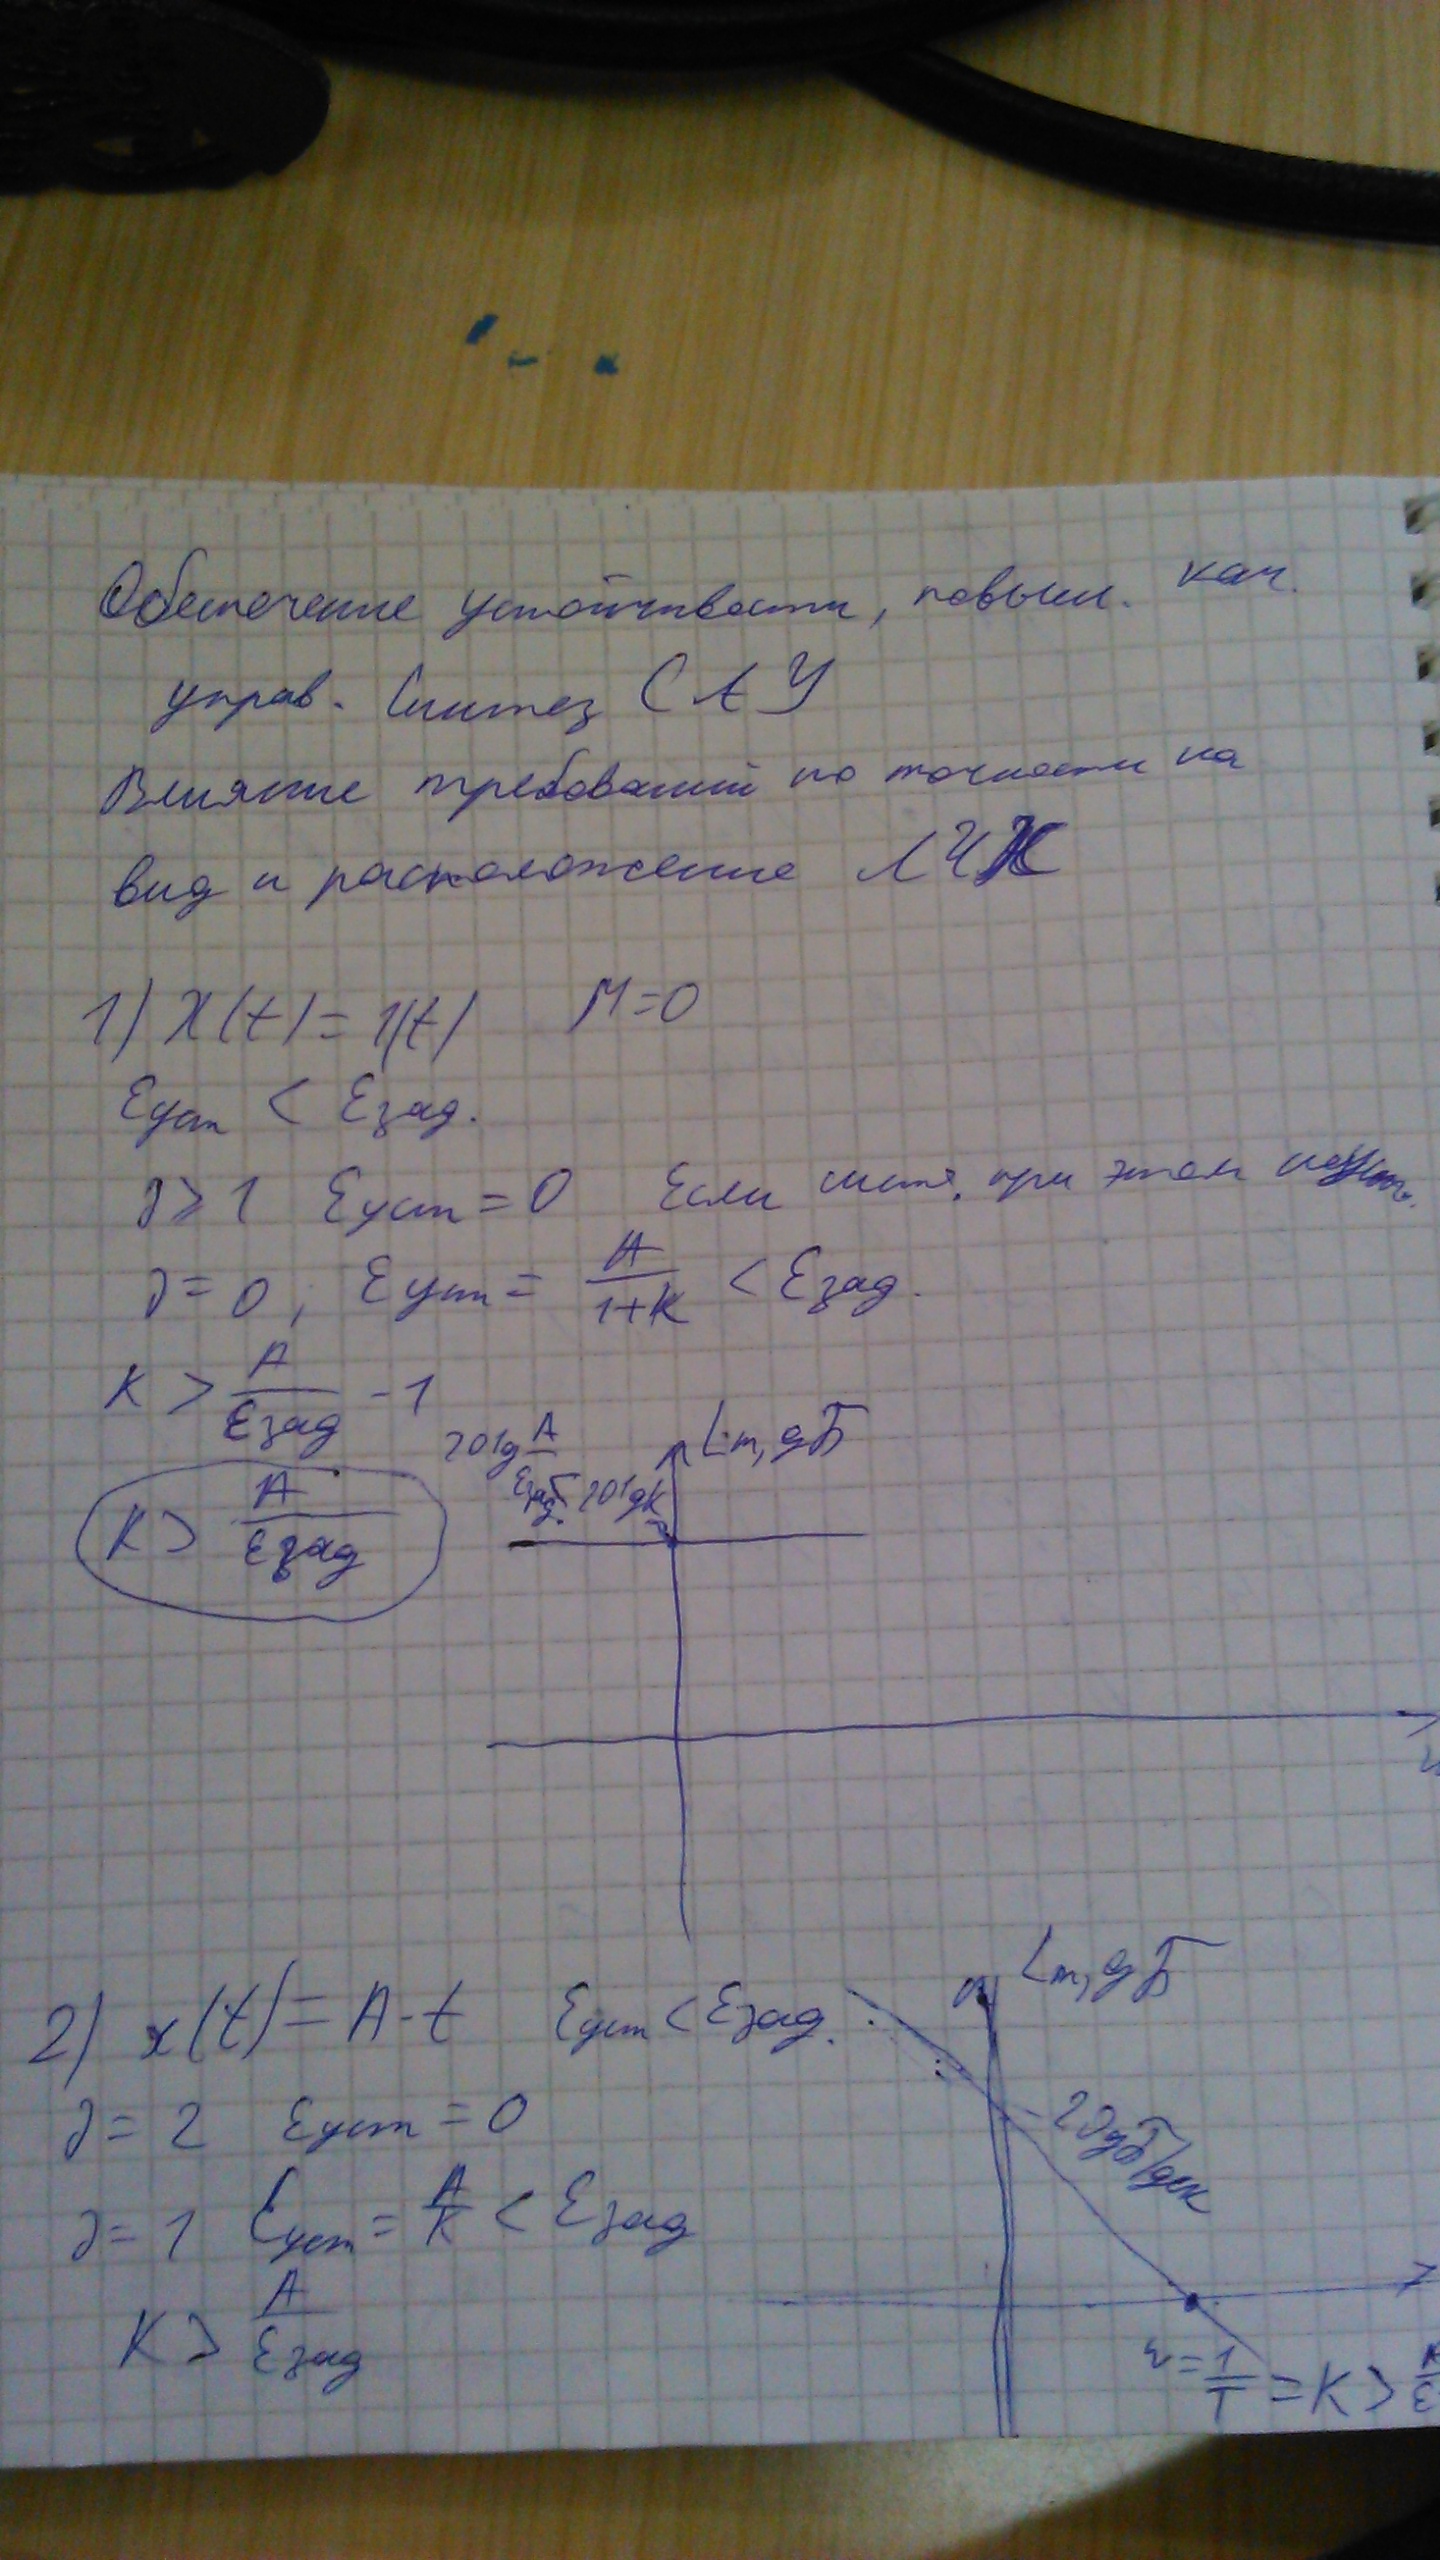 Обеспечение устойчивости, повыш. кач.
управ. Синтез САУ
Влияние требований по точности на
вид и расположение ЛЧХ
1) X(t) = 1(t) M=0
Eуст < Eзад.
∂ ≥ 1 Eуст = 0 Если сист. при этом неуст.
∂ = 0; Eуст = A/(1+K) < Eзад.
K > A/Eзад - 1
K > A/Eзад
20lg A/Eзад. 20lgK
Lm, дБ
2) x(t) = A·t Eуст < Eзад.
∂ = 2 Eуст = 0
∂ = 1 Eуст = A/K < Eзад
K > A/Eзад
Lm, дБ
-20дБ/дек
w = 1/T = K >